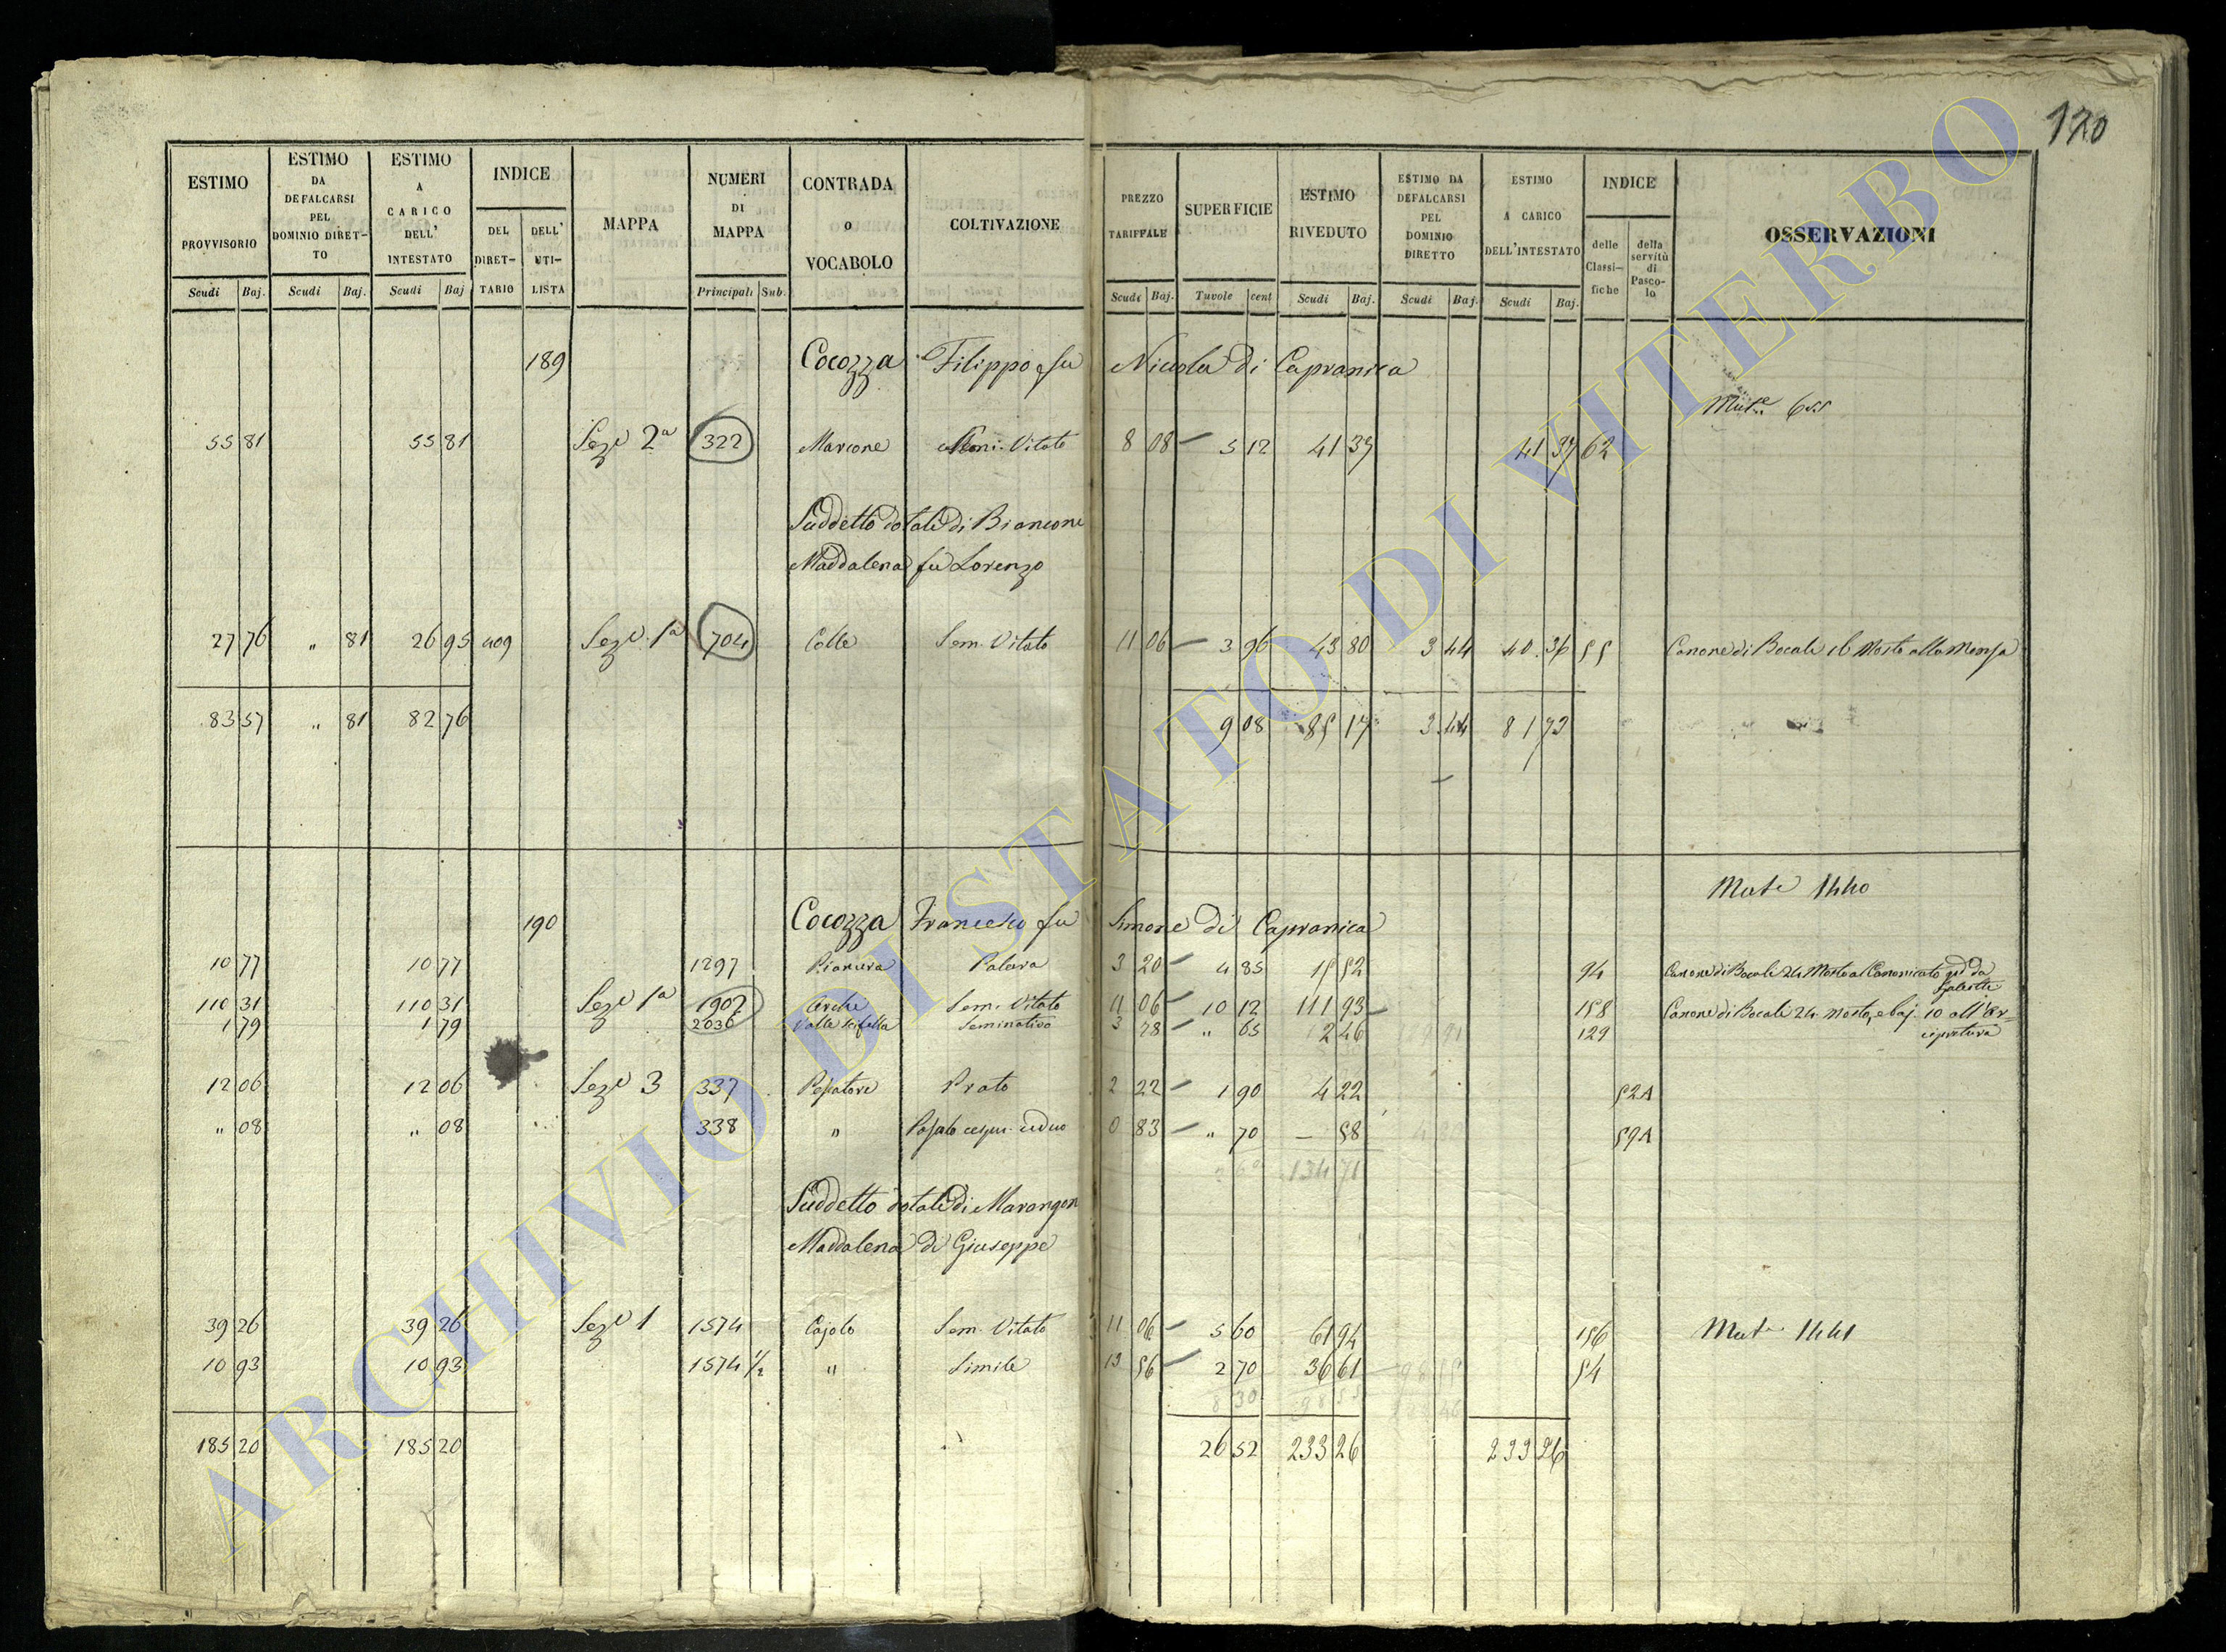 120
ESTIMO PROVVISORIO
ESTIMO DA DEFALCARSI PEL DOMINIO DIRET-TO
ESTIMO A CARICO DELL' INTESTATO
INDICE
DEL DIRET-TARIO
DELL' UTI-LISTA
MAPPA
NUMERI DI MAPPA
CONTRADA o VOCABOLO
COLTIVAZIONE
PREZZO TARIFFALE
SUPERFICIE
ESTIMO RIVEDUTO
ESTIMO DA DEFALCARSI PEL DOMINIO DIRETTO
ESTIMO A CARICO DELL'INTESTATO
INDICE
delle Classi-fiche
della servitù di Pasco-lo
OSSERVAZIONI
Scudi Baj. Scudi Baj. Scudi Baj Principali Sub. Scudi Baj. Tavole cent Scudi Baj. Scudi Baj. Scudi Baj.
189 Cocozza Filippo fu Nicola di Capranica
55 81 55 81 Seze 2a 322 Marcone Vitato 8 08 5 12 41 37 41 37 62
Suddetto dotali di Biancone
Maddalena fu Lorenzo
27 76 " 81 26 95 409 Seze 1a 704 Colle Sem. Vitato 11 06 3 96 43 80 3 44 40 36 55 Canone di Bocali 16 Mosto alla Mensa
83 57 " 81 82 76 9 08 85 17 3 44 81 73
Mute 1440
190 Cocozza Francesco fu Simone di Capranica
10 77 10 77 1297 Pianura 3 20 4 85 15 52 94 Canone di Bocali 24 Mosto al Canonicato
110 31 110 31 Seze 1a 1902 Sem. Vitato 11 06 10 12 111 93 158 Canone di Bocali 24 mosto, e baj. 10 all'Ar-
1 79 1 79 2036 Seminativo 3 78 " 65 2 46 129 cipretura
12 06 12 06 Seze 3 337 Prato 2 22 1 90 4 22 52A
" 08 " 08 338 " ceduo 0 83 " 70 — 58 59A
134 71
Suddetto dotali di Marangon
Maddalena di Giuseppe
39 26 39 26 Seze 1 1574 Cajolo Sem. Vitato 11 06 5 60 61 94 156 Mute 1441
10 93 10 93 1574 1/2 " Simile 13 56 2 70 36 61 54
8 30
185 20 185 20 26 52 233 26 233 26
ARCHIVIO DI STATO DI VITERBO